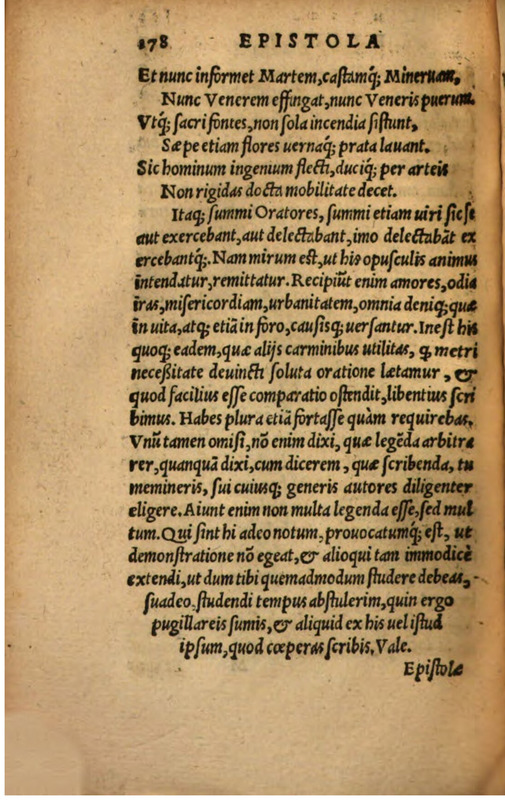 178 EPISTOLA
Et nunc informet Martem, castamq́; Mineruam,
Nunc Venerem effingat, nunc Veneris puerum.
Vtq́; sacri fontes, non sola incendia sistunt,
Sæpe etiam flores uernaq́; prata lauant.
Sic hominum ingenium flecti, duciq́; per arteis
Non rigidas docta mobilitate decet.
Itaq; summi Oratores, summi etiam uiri sic se
aut exercebant, aut delectabant, imo delectabāt ex
ercebantq́;. Nam mirum est, ut his opusculis animus
intendatur, remittatur. Recipiūt enim amores, odia
iras, misericordiam, urbanitatem, omnia deniq; quæ
in uita, atq; etiā in foro, causisq́; uersantur. Inest his
quoq; eadem, quæ alijs carminibus utilitas, ꝙ metri
necessitate deuincti soluta oratione lætamur, &
quod facilius esse comparatio ostendit, libentius scri
bimus. Habes plura etiā fortasse quàm requirebas.
Vnū tamen omisi, nō enim dixi, quæ legēda arbitra
rer, quanquā dixi, cum dicerem, quæ scribenda, tu
memineris, sui cuiusq; generis autores diligenter
eligere. Aiunt enim non multa legenda esse, sed mul
tum. Qui sint hi adeo notum, prouocatumq́; est, ut
demonstratione nō egeat, & alioqui tam immodicè
extendi, ut dum tibi quemadmodum studere debeas,
suadeo, studendi tempus abstulerim, quin ergo
pugillareis sumis, & aliquid ex his uel istud
ipsum, quod cœperas scribis. Vale.
Epistolæ